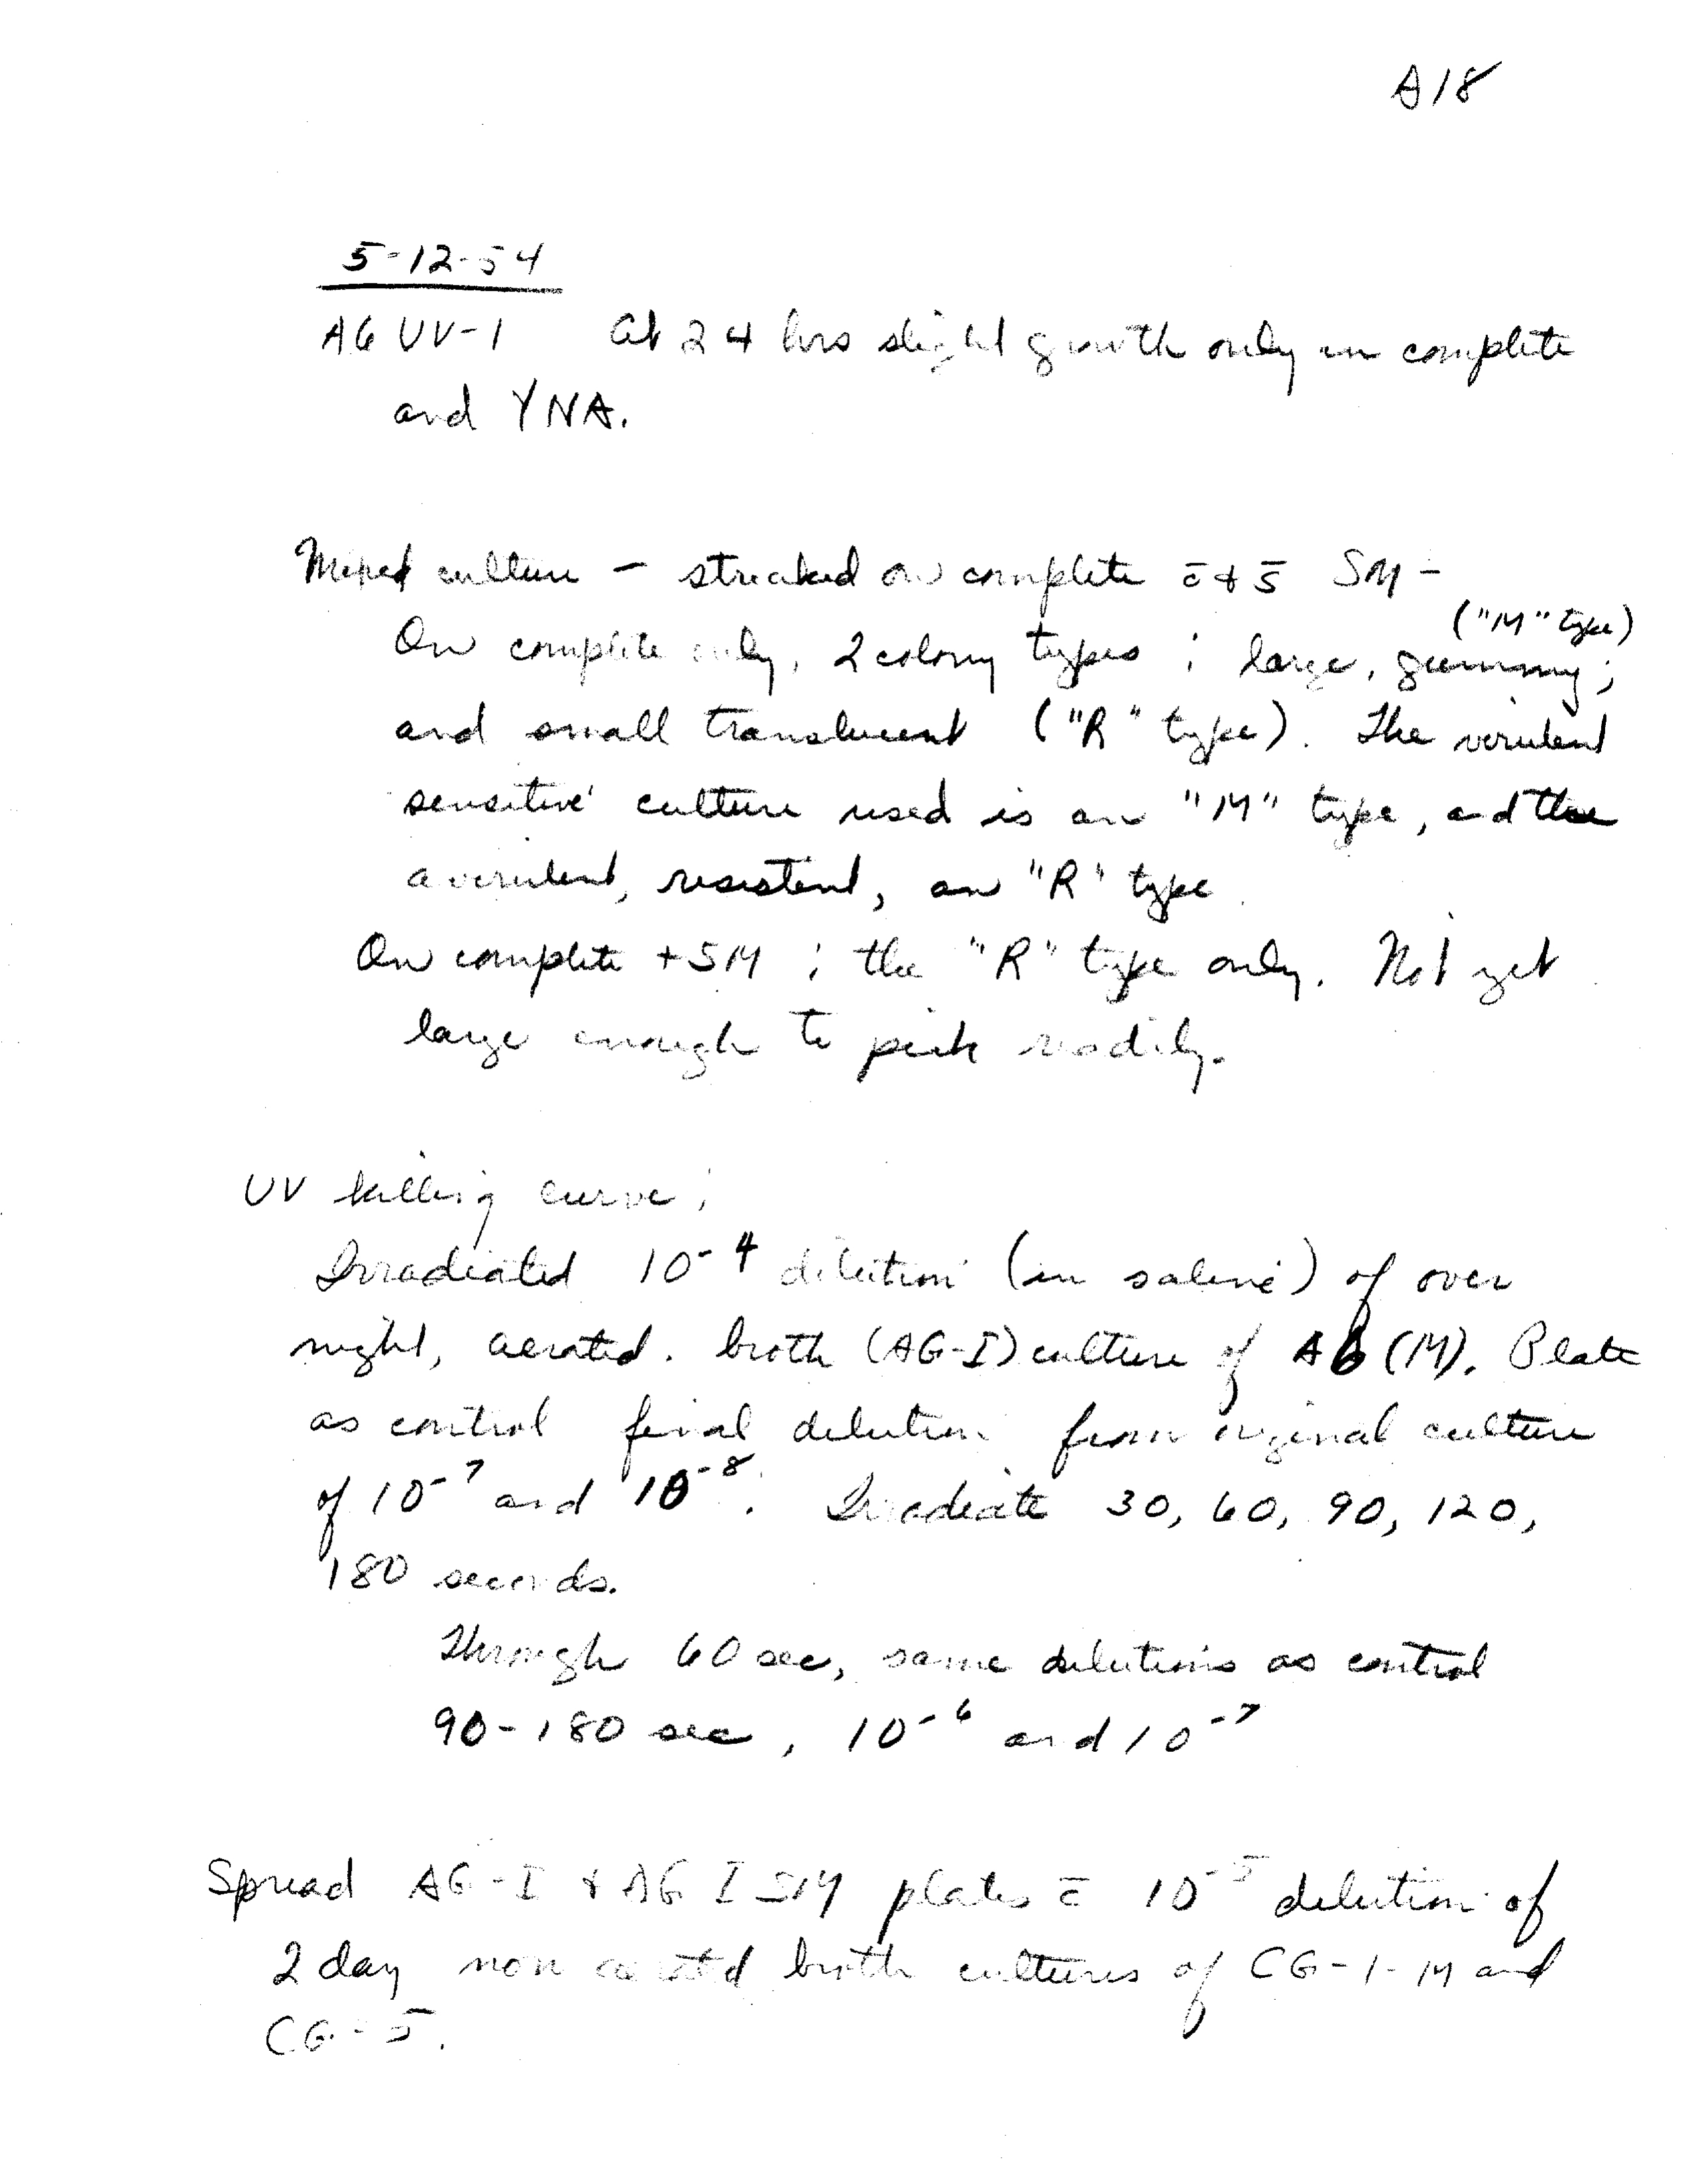 A18
5-12-54
A6 UV-1 At 24 hrs slight growth only in complete
and YNA.
Mixed culture - streaked on complete c̄ + s̄ SM -
("M" type)
On complete only, 2 colony types : large, gummy;
and small translucent ("R" type). The virulent
sensitive culture used is an "M" type, and the
avirulent, resistent, an "R" type.
On complete + SM ; the "R" type only. Not yet
large enough to pick readily.
UV killing curve ;
Irradiated 10⁻⁴ dilution (in saline) of over
night, aerated. broth (AG-I) culture of A6 (M). Plate
as control final dilution from orginal culture
of 10⁻⁷ and 10⁻⁸. Irradiate 30, 60, 90, 120,
180 seconds.
Through 60 sec, same dilutions as control
90-180 sec, 10⁻⁶ and 10⁻⁷
Spread AG-I + AG I SM plates c̄ 10⁻⁵ dilution of
2 day non aerated broth cultures of CG-1-M and
CG-5.